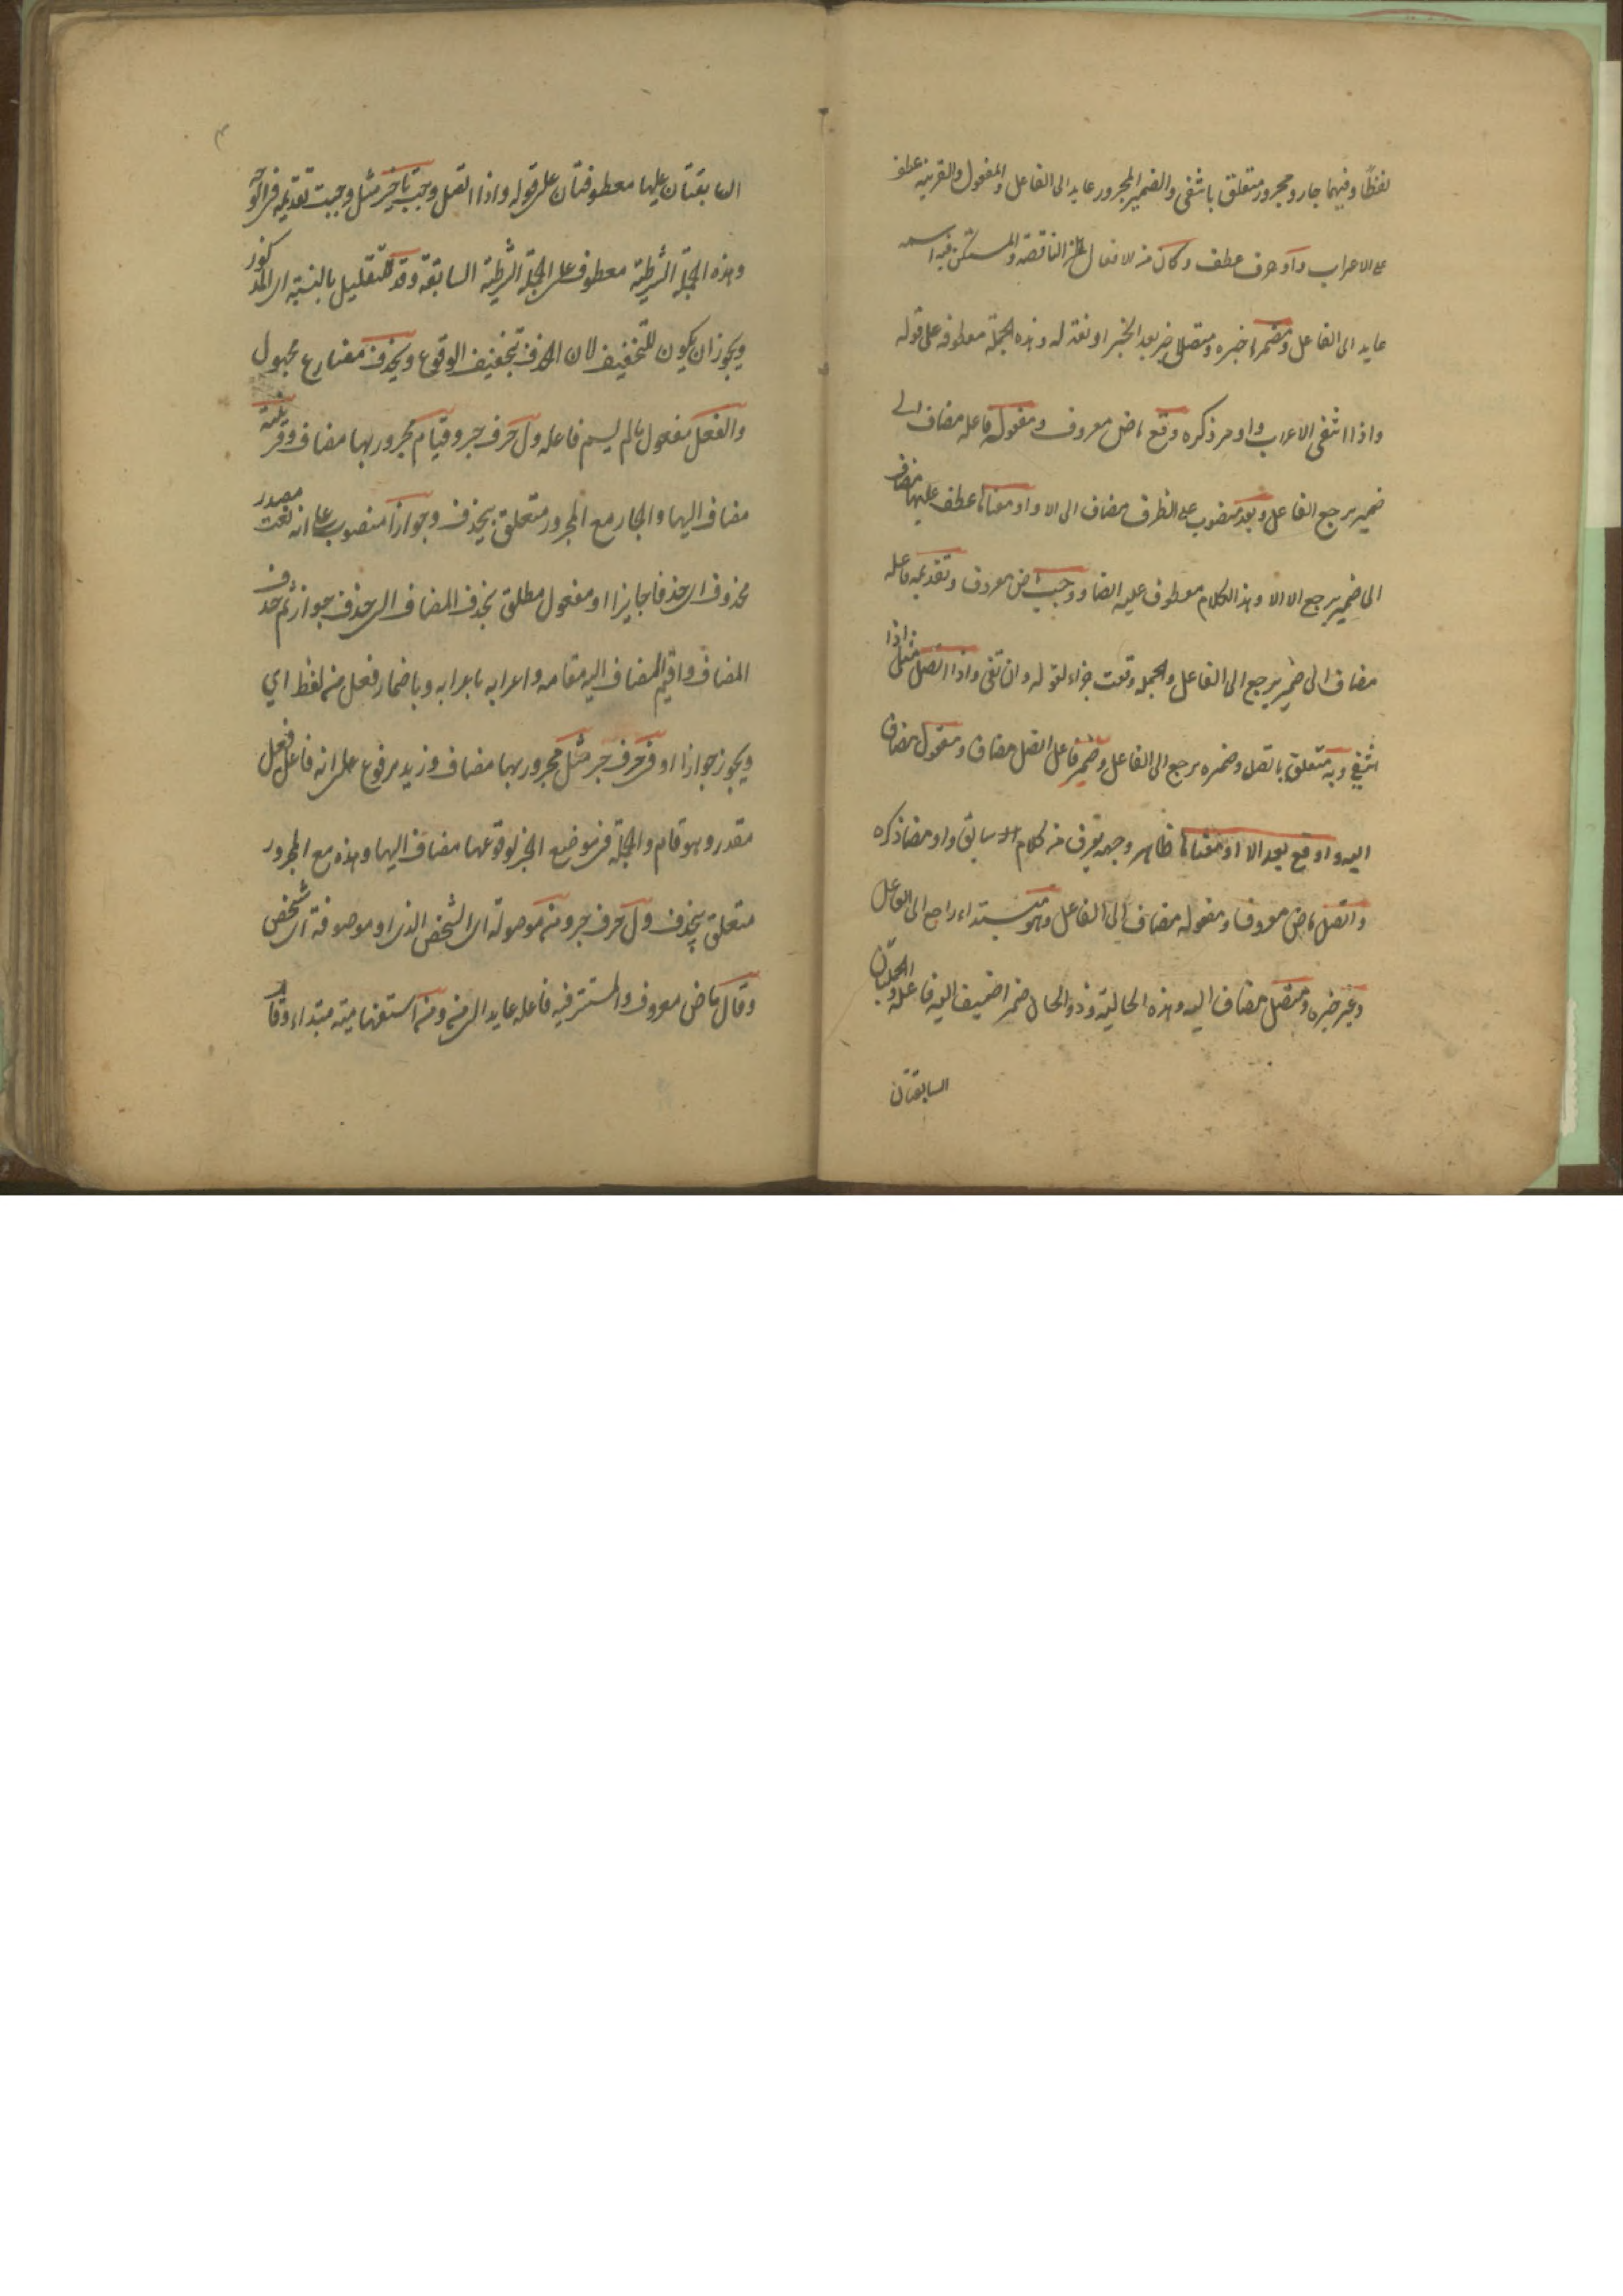 لفظًا وفيهما جار ومجرور متعلق بانتفى والضمير المجرور عايد الى الفاعل والمفعول والقرينة عطف
على الاعراب واو حرف عطف وكان من الافعال الناقصة والمستكن فيه اسمه
عايد الى الفاعل ومضمرا خبره ومتصلا خبر بعد الخبر او نعت له وهذه الجملة معطوفة على قوله
واذا انتفى الاعراب واو مر ذكره وقع ماض معروف ومفعوله فاعله مضاف الى
ضمير يرجع الفاعل وبعد منصوب على الظرف مضاف الى الا واو معناها عطف عليها مضاف
الى ضمير يرجع الى الا وهذا الكلام معطوف عليه ايضا ووجب ماض معروف وتقديمه فاعله
مضاف الى ضمير يرجع الى الفاعل والجملة وقعت جزاء لقوله وان تنفى واذا اتصل مثل اذا
انتفى وبه متعلق باتصل وضمره يرجع الى الفاعل وضمير فاعل اتصل مضاف ومفعول مضاف
اليه واو وقع بعد الا او معناها ظاهر وجهه يعرف من كلام السابق واو مضا ذكره
واتصل ماض معروف ومفعوله مضاف الى الفاعل وهو مبتداء راجع الى الفاعل
وغير خبره ومتصل مضاف اليه وهذه الحالية وذو الحال ضمير اضيف اليه فاعله والجملتان
السابقتان
السابقتان عليها معطوفتان على قوله واذا اتصل وجب تاخيره مثل وجب تقديمه في الوجه
وهذه الجملة الشرطية معطوف على الجملة الشرطية السابقة وقد للتقليل بالنسبة الى المذكور
ويجوز ان يكون للتخفيف لان الحذف تخفيف الوقوع ويحذف مضارع مجهول
والفعل مفعول مالم يسم فاعله ول حرف جر وقيام مجرور بها مضاف وقرينة
مضاف اليها والجار مع المجرور متعلق بيحذف وجوازا منصوب على انه نعت مصدر
محذوف اى حذفا جايزا او مفعول مطلق بحذف المضاف الى حذف جواز ثم حذف
المضاف واقيم المضاف اليه مقامه واعرابه باعرابه وباضمار فعل من لفظ اي
ويجوز جوازا او في حرف جر مثل مجرور بها مضاف وزيد مرفوع على انه فاعل فعل
مقدر وهو قام والجملة في موضع الجر لوقوعها مضاف اليها وهذه مع المجرور
متعلق بيحذف ول حرف جر ومن موصولة اى الشخص الذى او موصوفة اى شخص
وقال ماض معروف والمستتر فيه فاعله عايد الى من ومن استفهامية مبتداء وقام